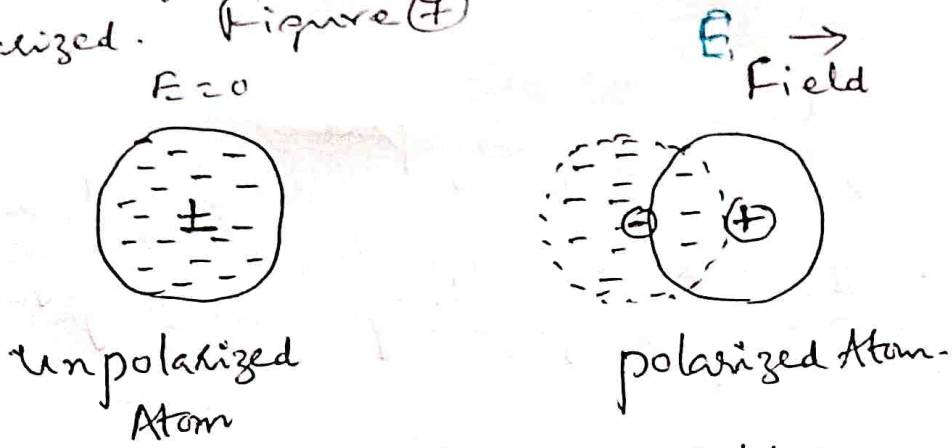 Figure (7)
E = 0
E →
Field
+
- +
unpolarized
Atom
polarized Atom.